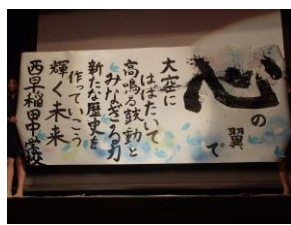 心の
翼
で
大空に
はばたいて
高鳴る鼓動と
みなぎる力
新たな歴史を
作っていこう
輝く未来
西早稲田中学校